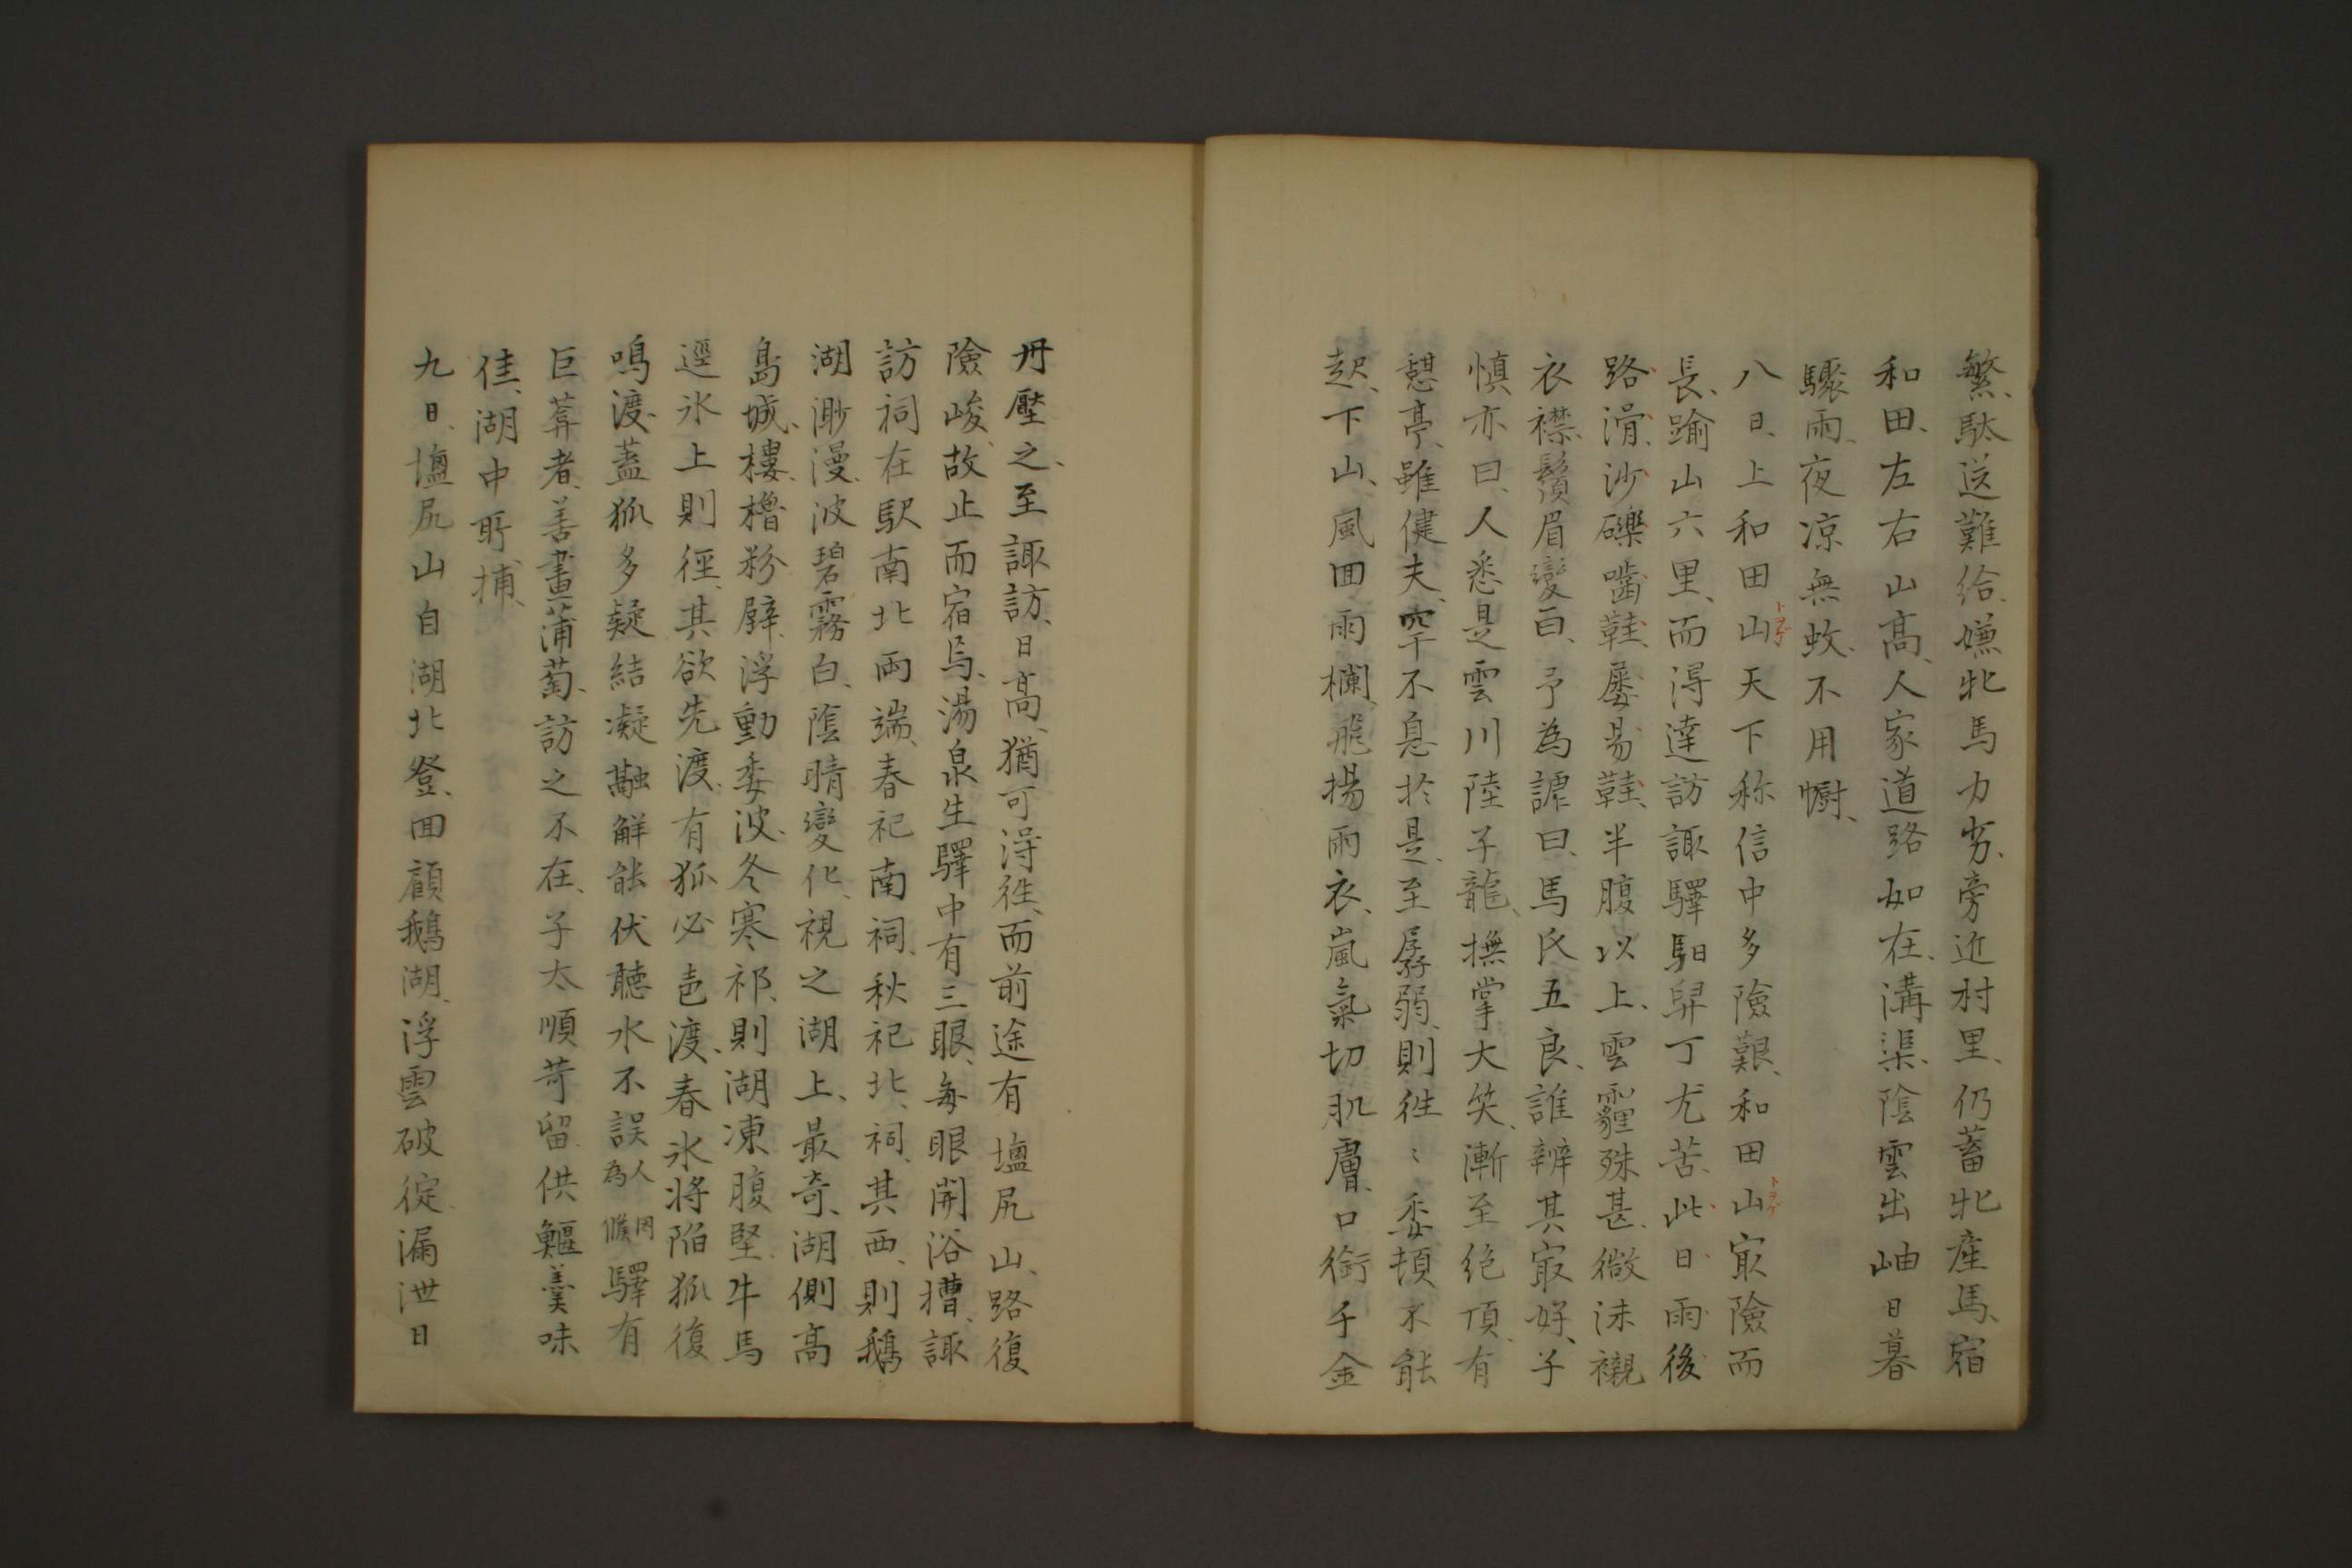 繁、駄送難給、嫌牝馬力劣、旁近村里、仍蓄牝産馬、宿
和田、左右山高、人家道路如在、溝渠、陰雲出岫日暮
驟雨、夜凉無蚊、不用幮、
八日、上和田山天下称信中多險艱、和田山㝡險而
トヲゲ
トヲゲ
長、踰山六里、而淂達訪諏驛馹舁丁尤苦、此日雨後
路滑、沙礫嚙鞋、屡易鞋、半腹以上、雲霾殊甚、微沫襯
衣襟、鬚眉變白、予為謔曰、馬氏五良、誰辨其㝡好、子
慎亦曰、人悉是雲川陸子龍、撫掌大笑、漸至絶頂、有
憇亭、雖健夫、罕不息於是、至孱弱、則徃〻委頓不能
起、下山、風回雨欄、飛揚雨衣、嵐氣切肌膚、口銜千金
丹壓之、至諏訪、日高、猶可淂徃、而前途有塩尻山、路復
險峻、故止而宿焉、湯泉生驛中有三眼、每眼開浴槽、諏
訪祠在駅南北兩端、春祀南祠、秋祀北祠、其西、則鵝
湖渺漫、波碧霧白、陰晴變化、視之湖上、最奇、湖側高
島城、樓櫓粉壁、浮動委波、冬寒祁、則湖凍腹堅、牛馬
逕氷上則徑、其欲先渡、有狐必㐌渡、春氷将陥狐復
鳴渡、蓋狐多疑結凝融解能伏聽水不誤人為罔候驛有
巨葊者、善畫蒲萄、訪之不在、子太順苛留、供鰋羹味
佳、湖中所捕、
九日、塩尻山自湖北登、回顧鵝湖、浮雲破㝎、漏泄日